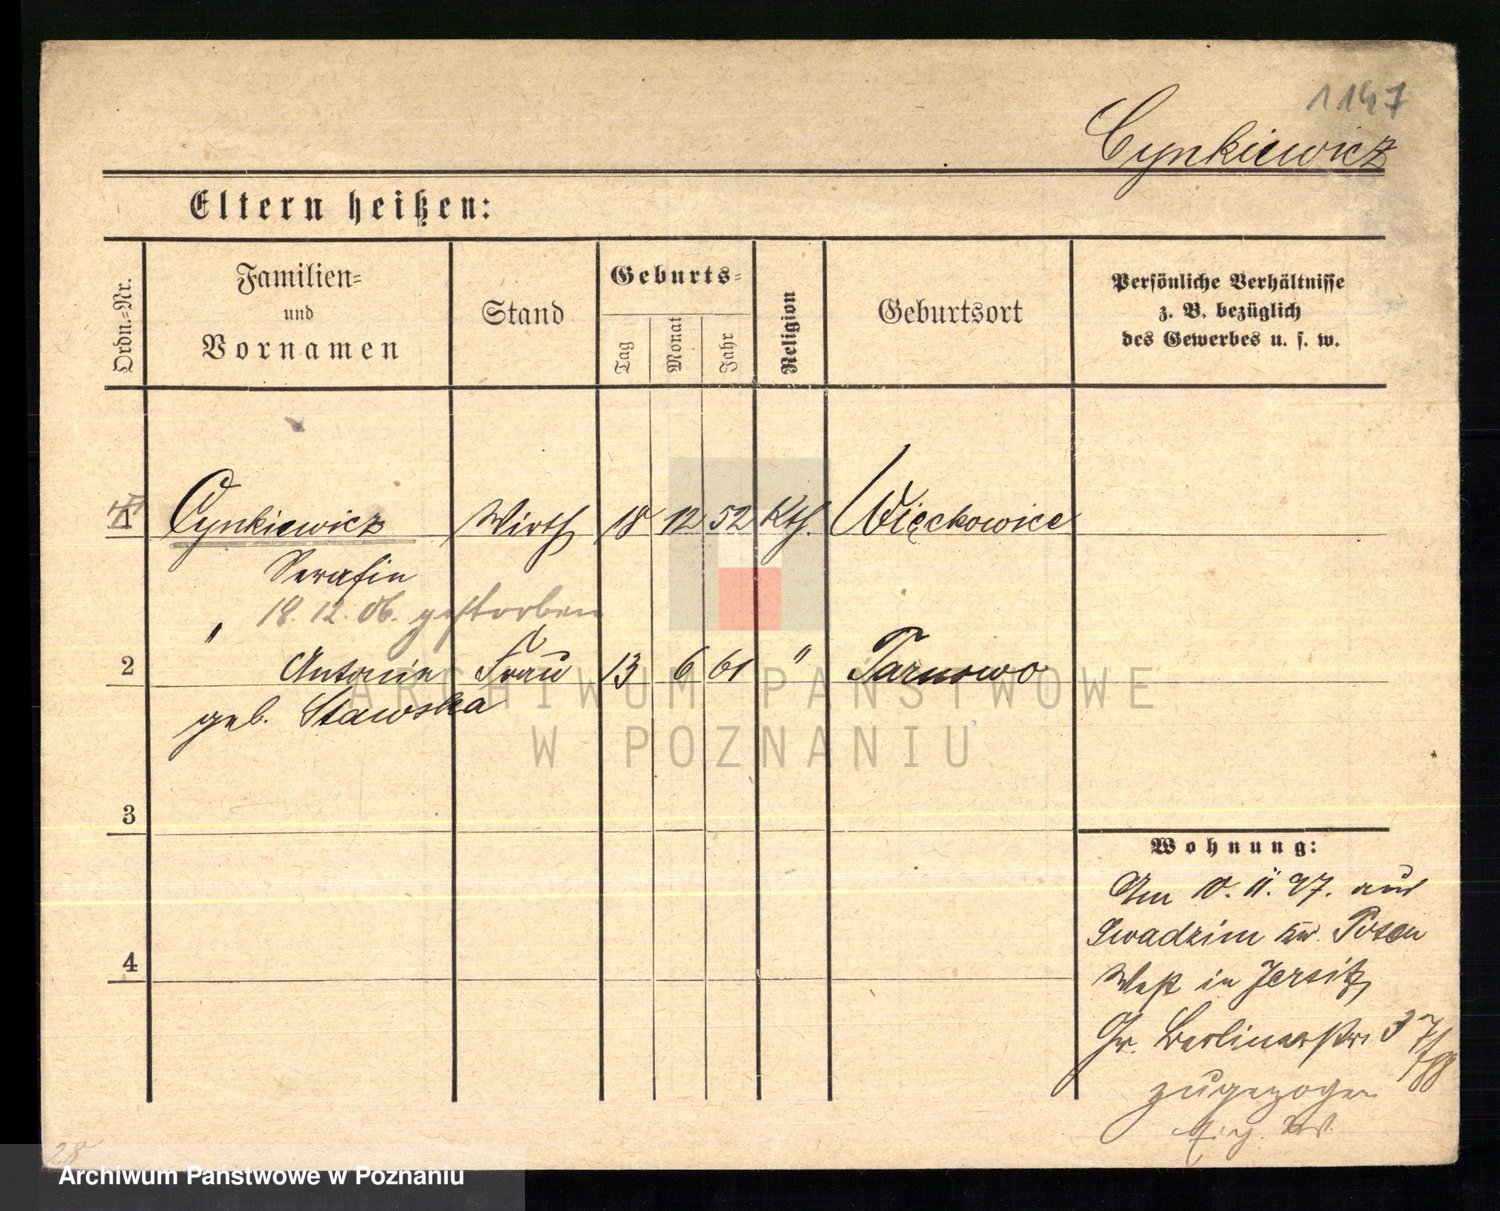 1147
Cynkiewicz
Eltern heißen:
Ordn.-Nr.
Familien-
und
Vornamen
Stand
Geburts-
Tag
Monat
Jahr
Religion
Geburtsort
Persönliche Verhältnisse
z. B. bezüglich
des Gewerbes u. s. w.
1 Cynkiewicz Wirth 18 12 52 Kth. Więckowice
Serafin
18. 12. 06. gestorben
2 " Antonie Frau 13 6 61 " Tarnowo
geb. Stawska
ARCHIWUM PAŃSTWOWE
W POZNANIU
3
4
Wohnung:
Am 10. 11. 97. aus
Swadzim Kr. Posen
West in Jersitz
Gr. Berlinerstr. 37
zugezogen
28
Archiwum Państwowe w Poznaniu